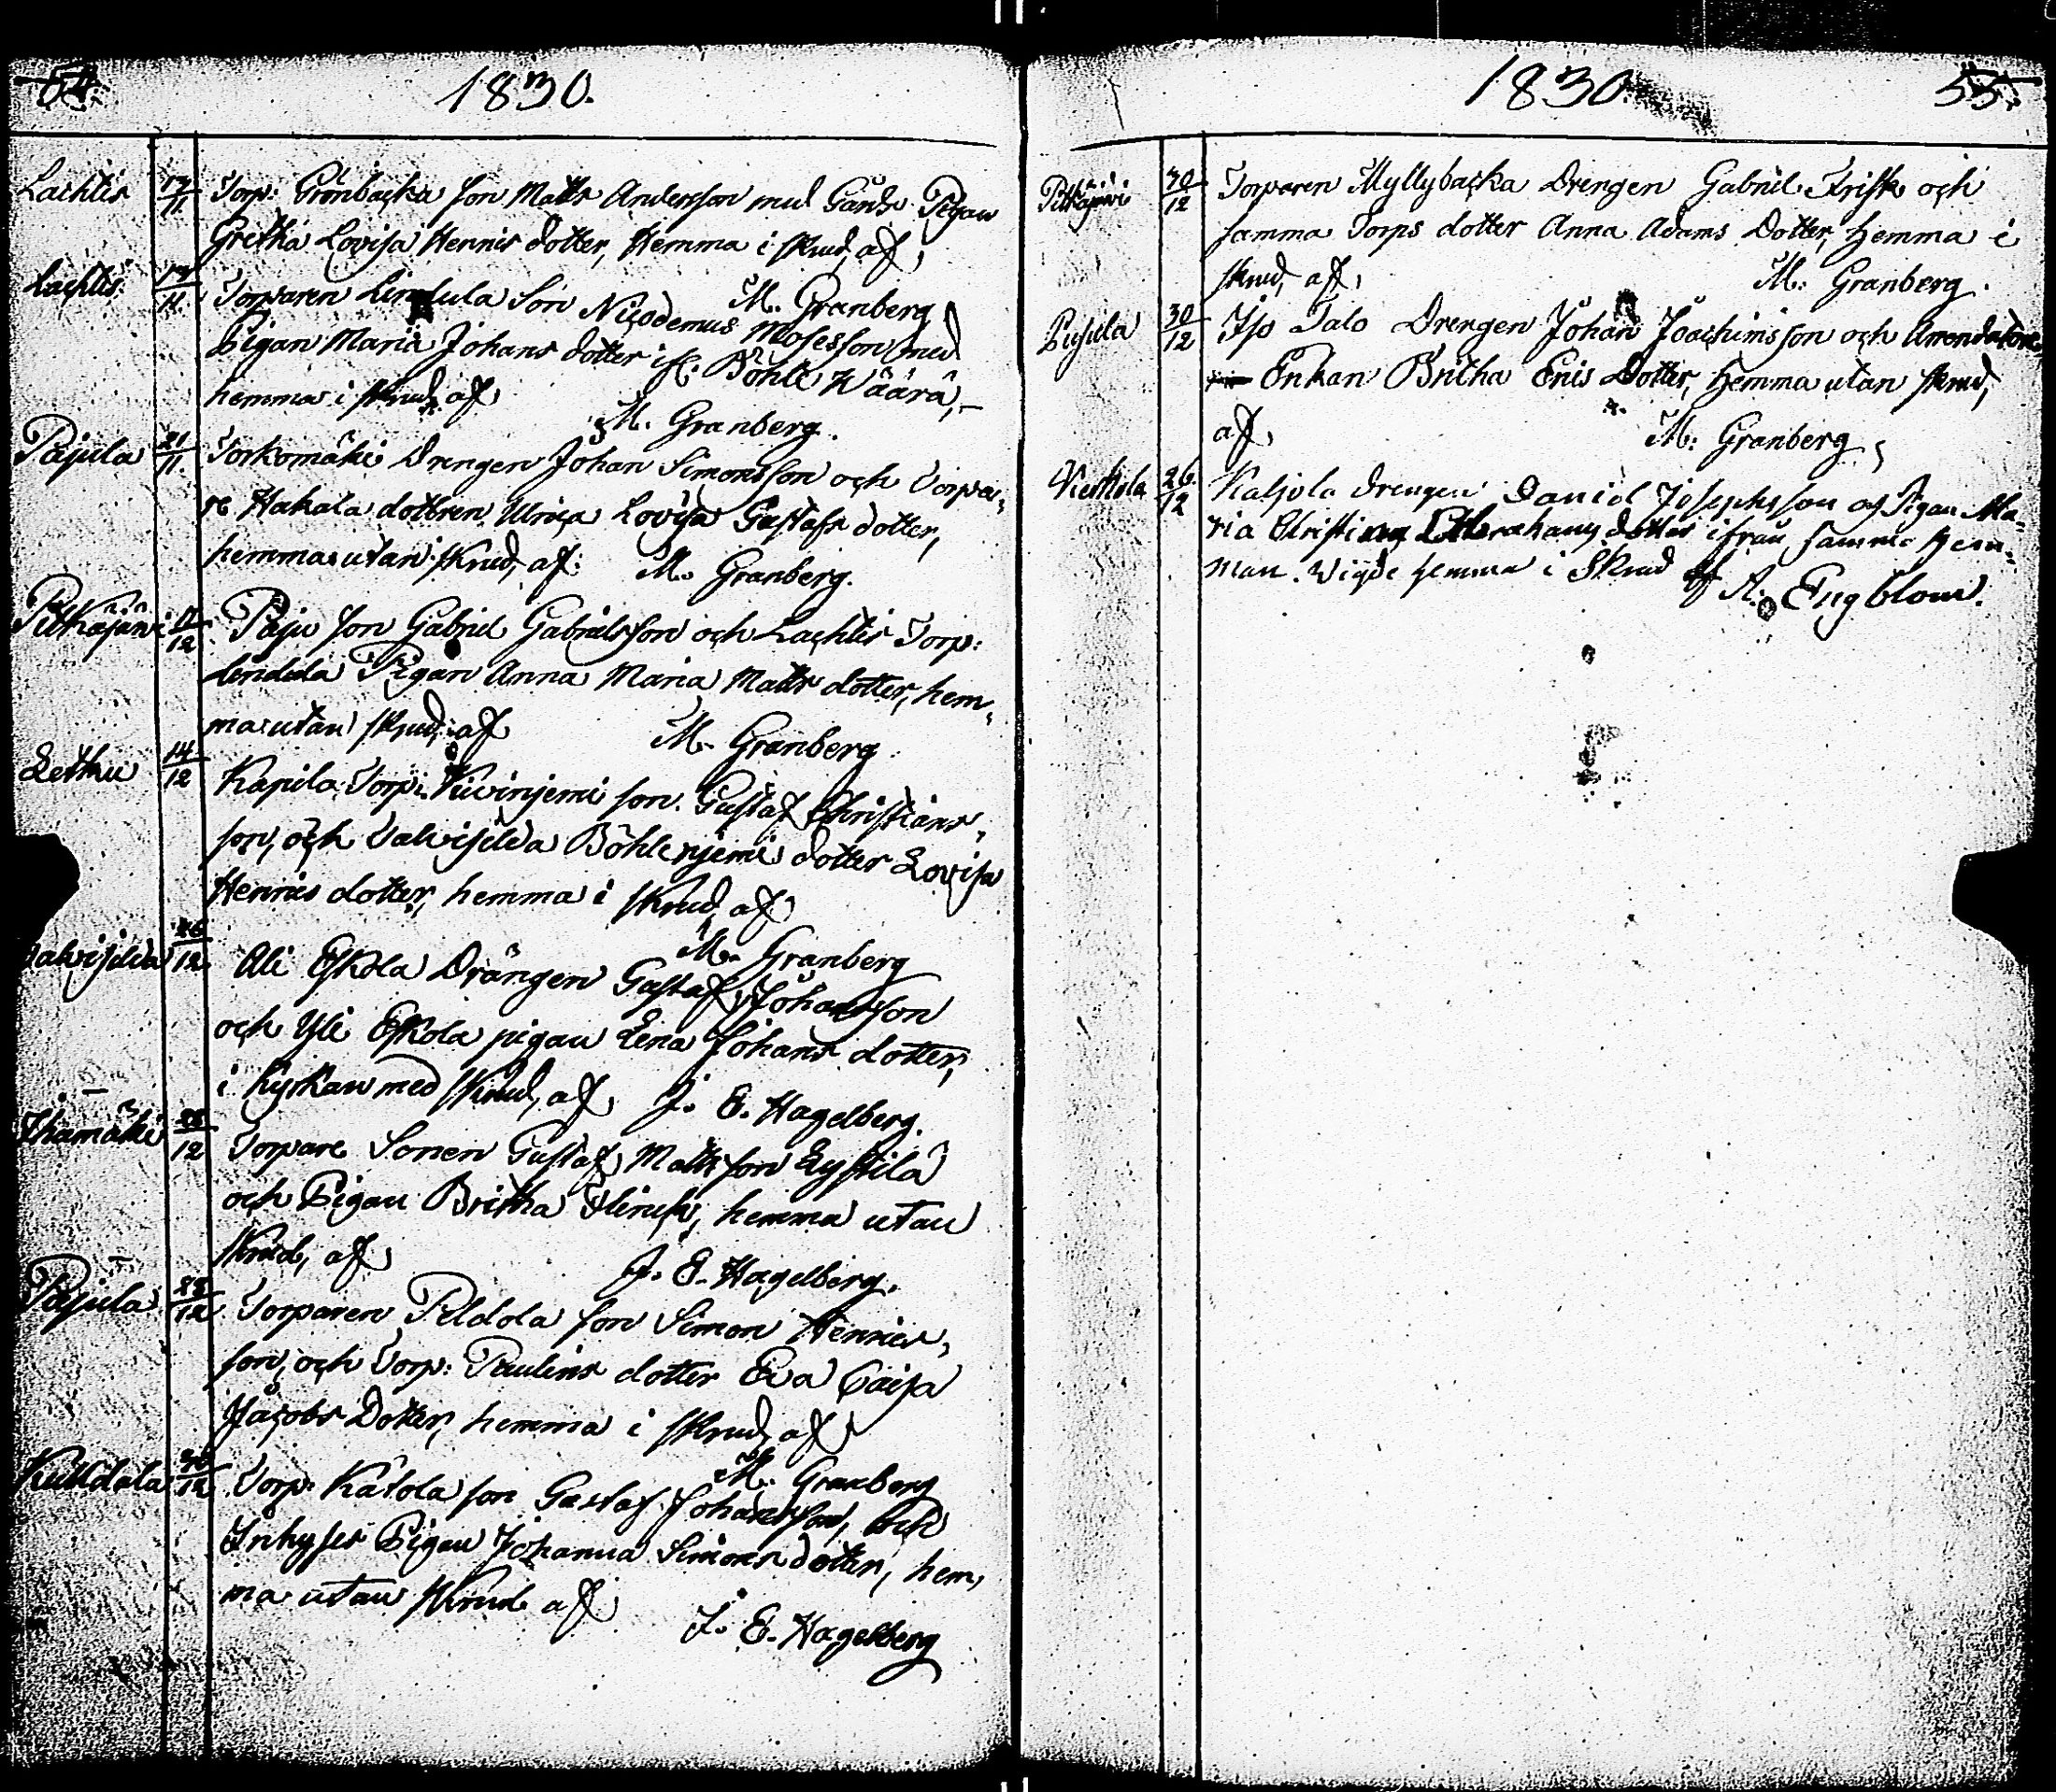 54.
1830.
Lachtis 17/11. Torp: Grönbacka son Matts Andersson med Gårds Pigan
Gretha Lovisa Henrics dotter, Hemma i skrud, af,
M. Granberg
Lachtis 17/11. Torparen Lindula Son Nicodemus Mosesson med
Pigan Maria Johans dotter if. Böhle Wäärä,
hemma i skrud, af,
M. Granberg.
Pajula 21/11. Torkomäki Drengen Johan Simonsson och Torpa,
re Hakala dottren Ulrica Lovisa Gustafs dotter,
hemma utan skrud, af: M. Granberg.
Pitkäjärvi /12 Paju son Gabriel Gabrielsson och Lachtis Torp:
Lindula Pigan Anna Maria Matts dotter, hem,
ma utan skrud, af
M. Granberg.
Letku 14/12 Kapila Torp: son. Gustaf Christians,
son, och Talvisilda Böhlenjemi dotter Lovisa
Henrics dotter, hemma i skrud, af
M. Granberg
Talvisilda 26/12 Ali Eskola Drängen Gustaf Johansson
och Yli Eskola pigan Lena Johans dotter,
i kyrkan med skrud, af J. E. Hagelberg.
12 Torpare Sonen Gustaf Mattsson Eystilä
och Pigan Britha, hemma utan
skrud, af
J. E. Hagelberg.
Pajula 28/12 Torparen Peldola son Simon Henrics,
son, och Torp: Paulins dotter Eva Caisa
Jacobs Dotter, hemma i skrud, af
M. Granberg
Kuuldola 12 Torp: Kätola son Gustaf Johansson, och
Inhyses Pigan Johanna Simons dotter, hem,
ma utan skrud af
J. E. Hagelberg
1830.
55.
Pitkäjärvi 30/12 Torparen Myllybacka Drengen Gabriel Frisk och
samma Torps dotter Anna Adams Dotter, hemma i
skrud, af, M. Granberg.
Pujula 30/12 Iso Talo Drengen Johan Joachimsson och
Enkan Britha Eris Dotter, hemma utan skrud,
af,
M. Granberg
26/12 Kaljola drengen Daniel Josephsson och Pigan Ma-
ria dotter ifrån samma Hem-
man. Wigde hemma i Skrud af A. Engblom.